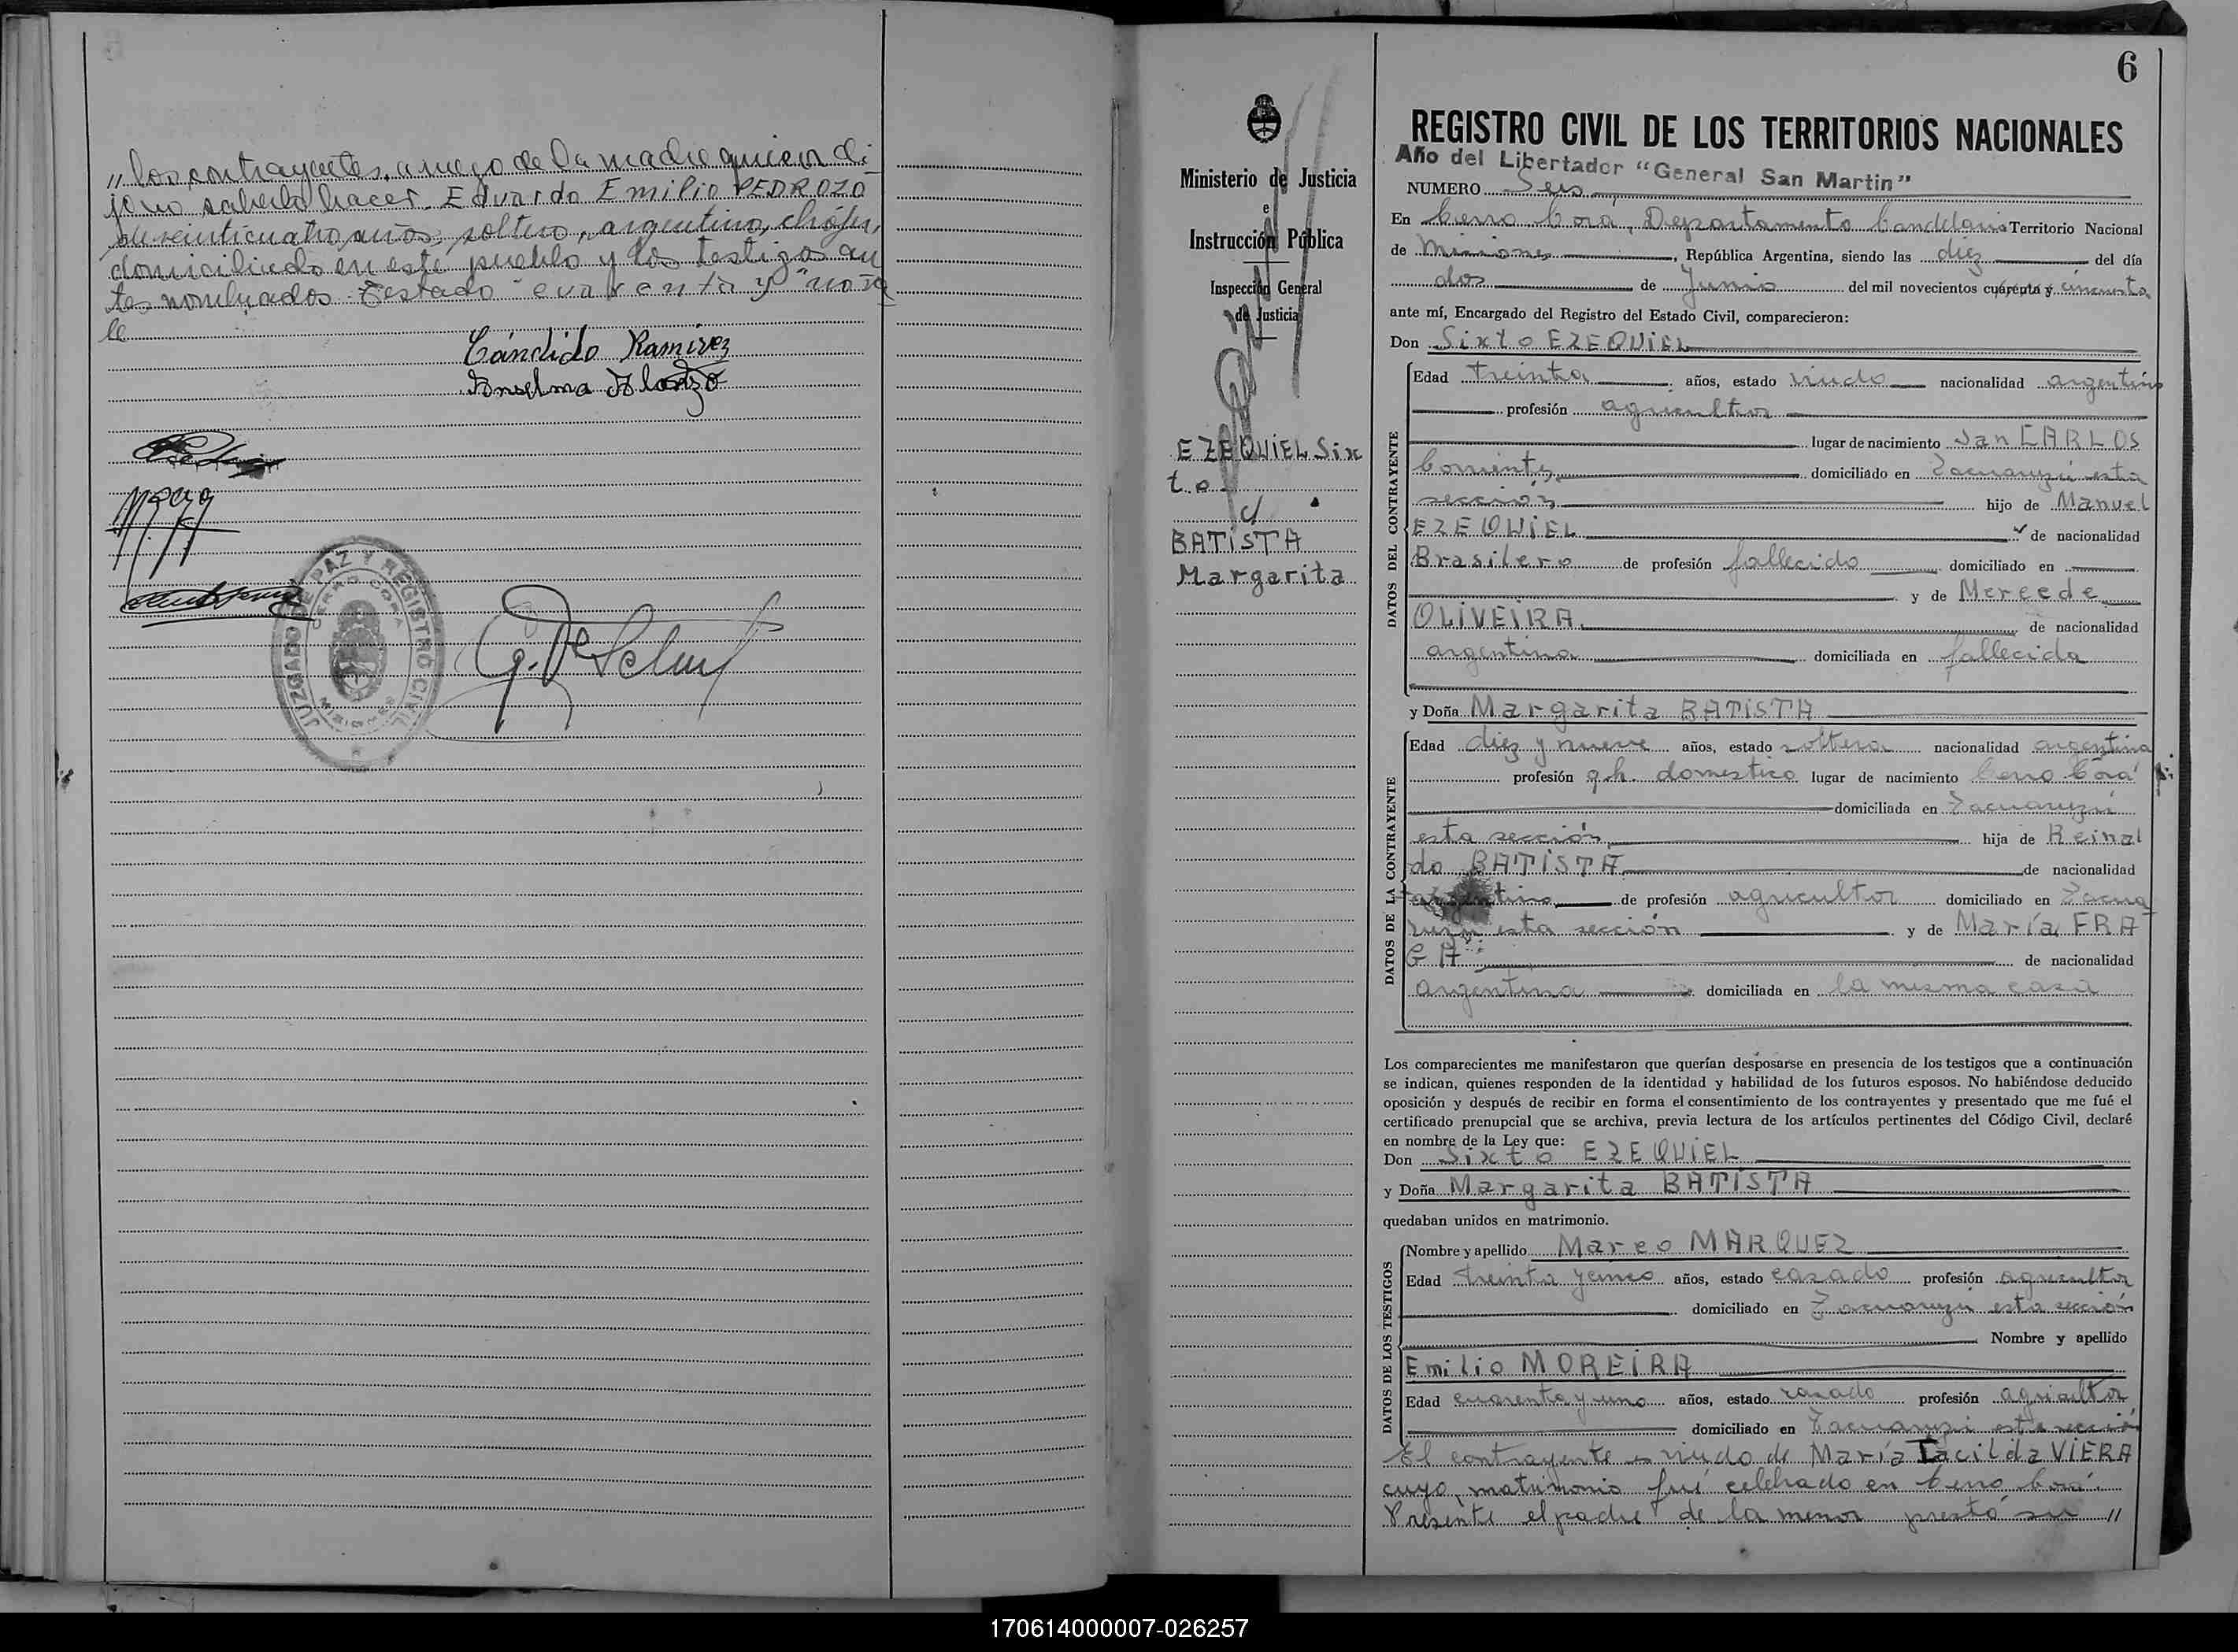 „ los contrayentes, a ruego de la madre quien di
jo no saberlo hacer. Eduardo Emilio PEDROZO
de veinticuatro años, soltero, argentino, chófer,
domiciliado en este pueblo y los testigos an
tes nombrados. Testado "cuarenta y" no va
le
Cándido Ramirez
Anselma Alonzo
JUZGADO DE PAZ Y REGISTRO CIVIL
CERRO CORA
MISIONES
6
Ministerio de Justicia
e
Instrucción Pública
Inspección General
de Justicia
EZEQUIEL Six
to
c/
BATISTA
Margarita
REGISTRO CIVIL DE LOS TERRITORIOS NACIONALES
Año del Libertador "General San Martin"
NUMERO Seis
En Cerro Corá, Departamento Candelaria Territorio Nacional
de Misiones, República Argentina, siendo las diez del día
dos de Junio del mil novecientos cuarenta y cincuenta
ante mí, Encargado del Registro del Estado Civil, comparecieron:
Don Sixto EZEQUIEL
DATOS DEL CONTRAYENTE
Edad treinta años, estado viudo nacionalidad argentino
profesión agricultor
lugar de nacimiento San CARLOS
Corrientes domiciliado en Tacuaruzú esta
sección hijo de Manuel
EZEQUIEL de nacionalidad
Brasilero de profesión fallecido domiciliado en
y de Mercede
OLIVEIRA de nacionalidad
argentina domiciliada en fallecida
y Doña Margarita BATISTA
DATOS DE LA CONTRAYENTE
Edad diez y nueve años, estado soltera nacionalidad argentina
profesión q.h. domestico lugar de nacimiento Cerro Corá
domiciliada en Tacuaruzú
esta sección hija de Reinal
do BATISTA de nacionalidad
argentino de profesión agricultor domiciliado en Tacua
ruzú esta sección y de María FRA
GA de nacionalidad
argentina domiciliada en la mesma casa
Los comparecientes me manifestaron que querían desposarse en presencia de los testigos que a continuación
se indican, quienes responden de la identidad y habilidad de los futuros esposos. No habiéndose deducido
oposición y después de recibir en forma el consentimiento de los contrayentes y presentado que me fué el
certificado prenupcial que se archiva, previa lectura de los artículos pertinentes del Código Civil, declaré
en nombre de la Ley que:
Don Sixto EZEQUIEL
y Doña Margarita BATISTA
quedaban unidos en matrimonio.
DATOS DE LOS TESTIGOS
Nombre y apellido Marco MARQUEZ
Edad treinta y cinco años, estado casado profesión agricultor
domiciliado en Tacuaruzú esta sección
Nombre y apellido
Emilio MOREIRA
Edad cuarenta y uno años, estado casado profesión agricultor
domiciliado en Tacuaruzú esta sección
El contrayente es viudo de María Tacilda VIERA
cuyo matrimonio fué celebrado en Cerro Corá.
Presente el padre de la menor prestó su „
170614000007-026257